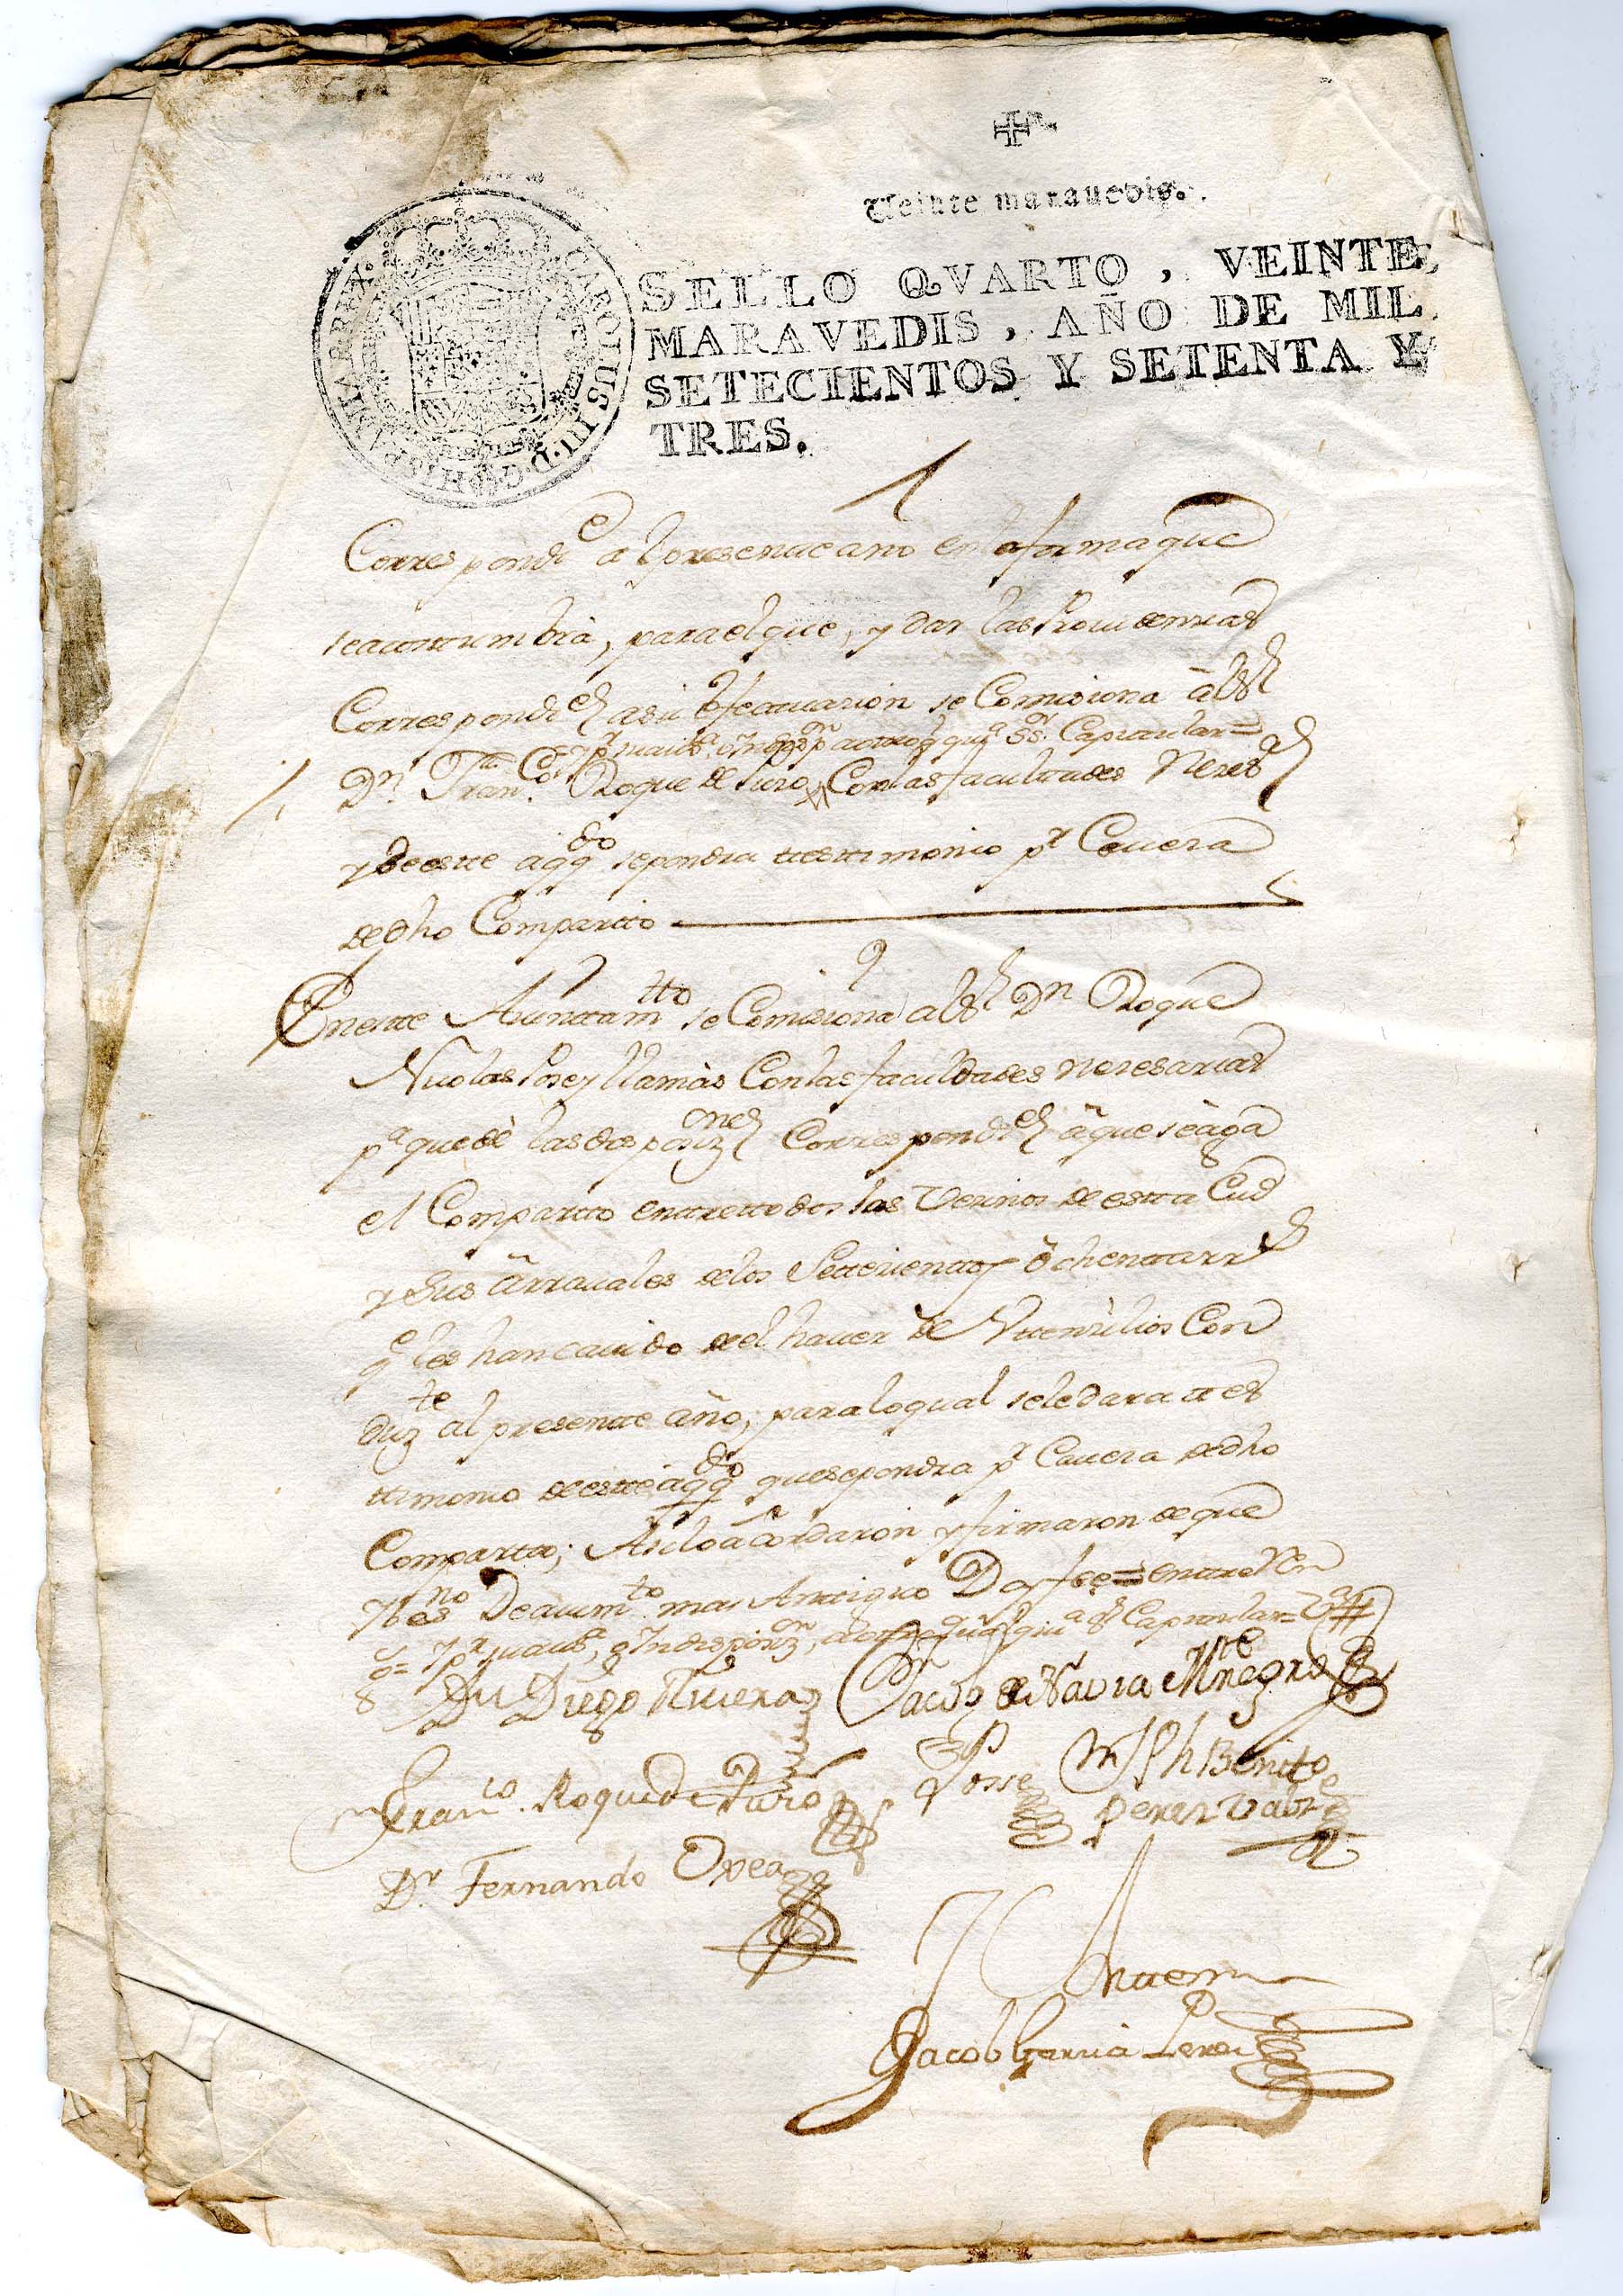 Veinte maravedis.
CAROLUS III. D. G. HISPANIAR. REX.
SELLO QVARTO, VEINTE
MARAVEDIS, AÑO DE MIL
SETECIENTOS Y SETENTA Y
TRES.
Correspondte al presente ano en la forma que
seacostumbra, para el que, y dar las Providencias
Correspondes asu efectuazion se Comisiona al Sr
Capitular=
Dn Franco Roque de Puro Con las facultades Neces
y de este aqqdo se pondra testimonio pr Cavera
de dho Compartto
En este Aiunttamtto se Comisiona al Sr Dn Roque
Nicolas Pose y Llamas Con las facultades nesesarias
pa que dè las dispoziznes Correspondes à que se àga
el Compartto entre ttodos los Vecinos de esta Ciud
y sus àrravales de los Settecientos y ochentta rrs
qe les han cavido del haver de Uttensilios Con
duzte al presentte año; para lo qual se le dara ttes
timonio de este aqqdo que se pondra pr Cavera de dho
Compartto; Asi lo àcordaron y firmaron de que
Yo esno De aiuntto mas Anttiguo Doy fee= entre Ren
Dn Diego Rivera Jacob de Navia Mnttenegro
Franco. Roque de Puro Posse Jph Benito
Perez Valr
Dr Fernando Oxea
Antte mi
Jacob Garcia Perez